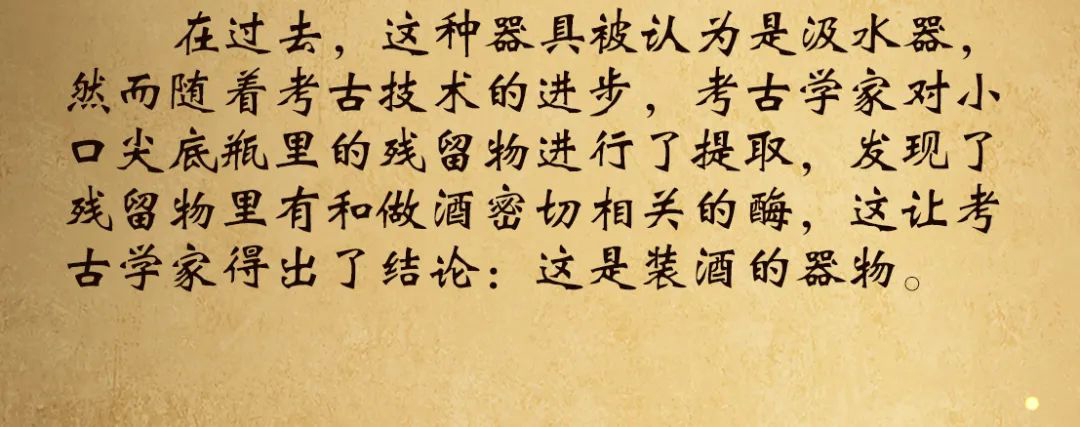 在过去，这种器具被认为是汲水器，
然而随着考古技术的进步，考古学家对小
口尖底瓶里的残留物进行了提取，发现了
残留物里有和做酒密切相关的酶，这让考
古学家得出了结论：这是装酒的器物。